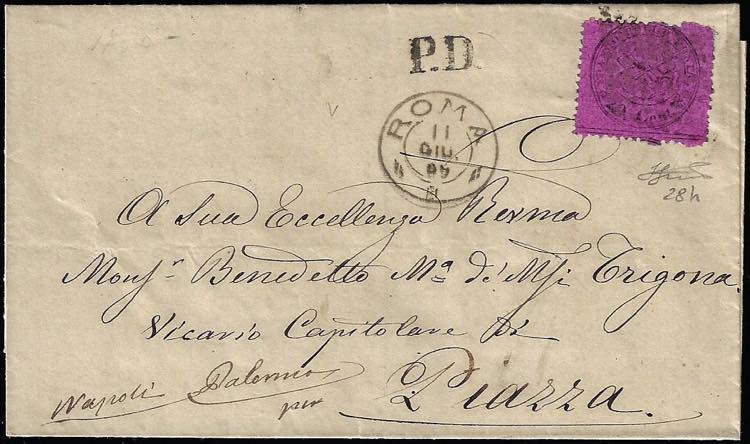 P.D.
ROMA
11
GIU.
69
28h
A Sua Eccellenza Revma
Monsr. Benedetto Ma. de' Msi Trigona
Vicario Capitolare di
Piazza.
Napoli Palermo
per